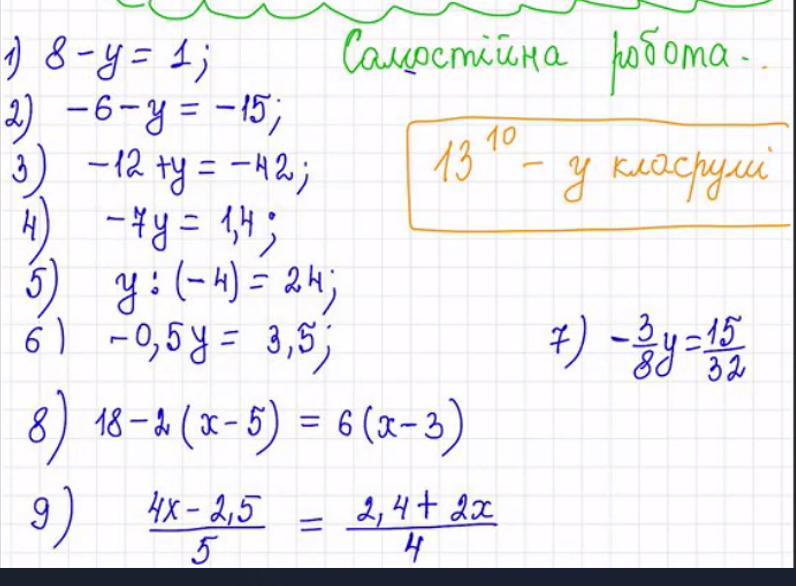 1) 8 - y = 1;
Самостійна робота..
2) -6 - y = -15;
13¹⁰ - у класруші
3) -12 + y = -42;
4) -7y = 1,4;
5) y : (-4) = 24;
6) -0,5y = 3,5;
7) -3/8 y = 15/32
8) 18 - 2(x - 5) = 6(x - 3)
9) (4x - 2,5)/5 = (2,4 + 2x)/4